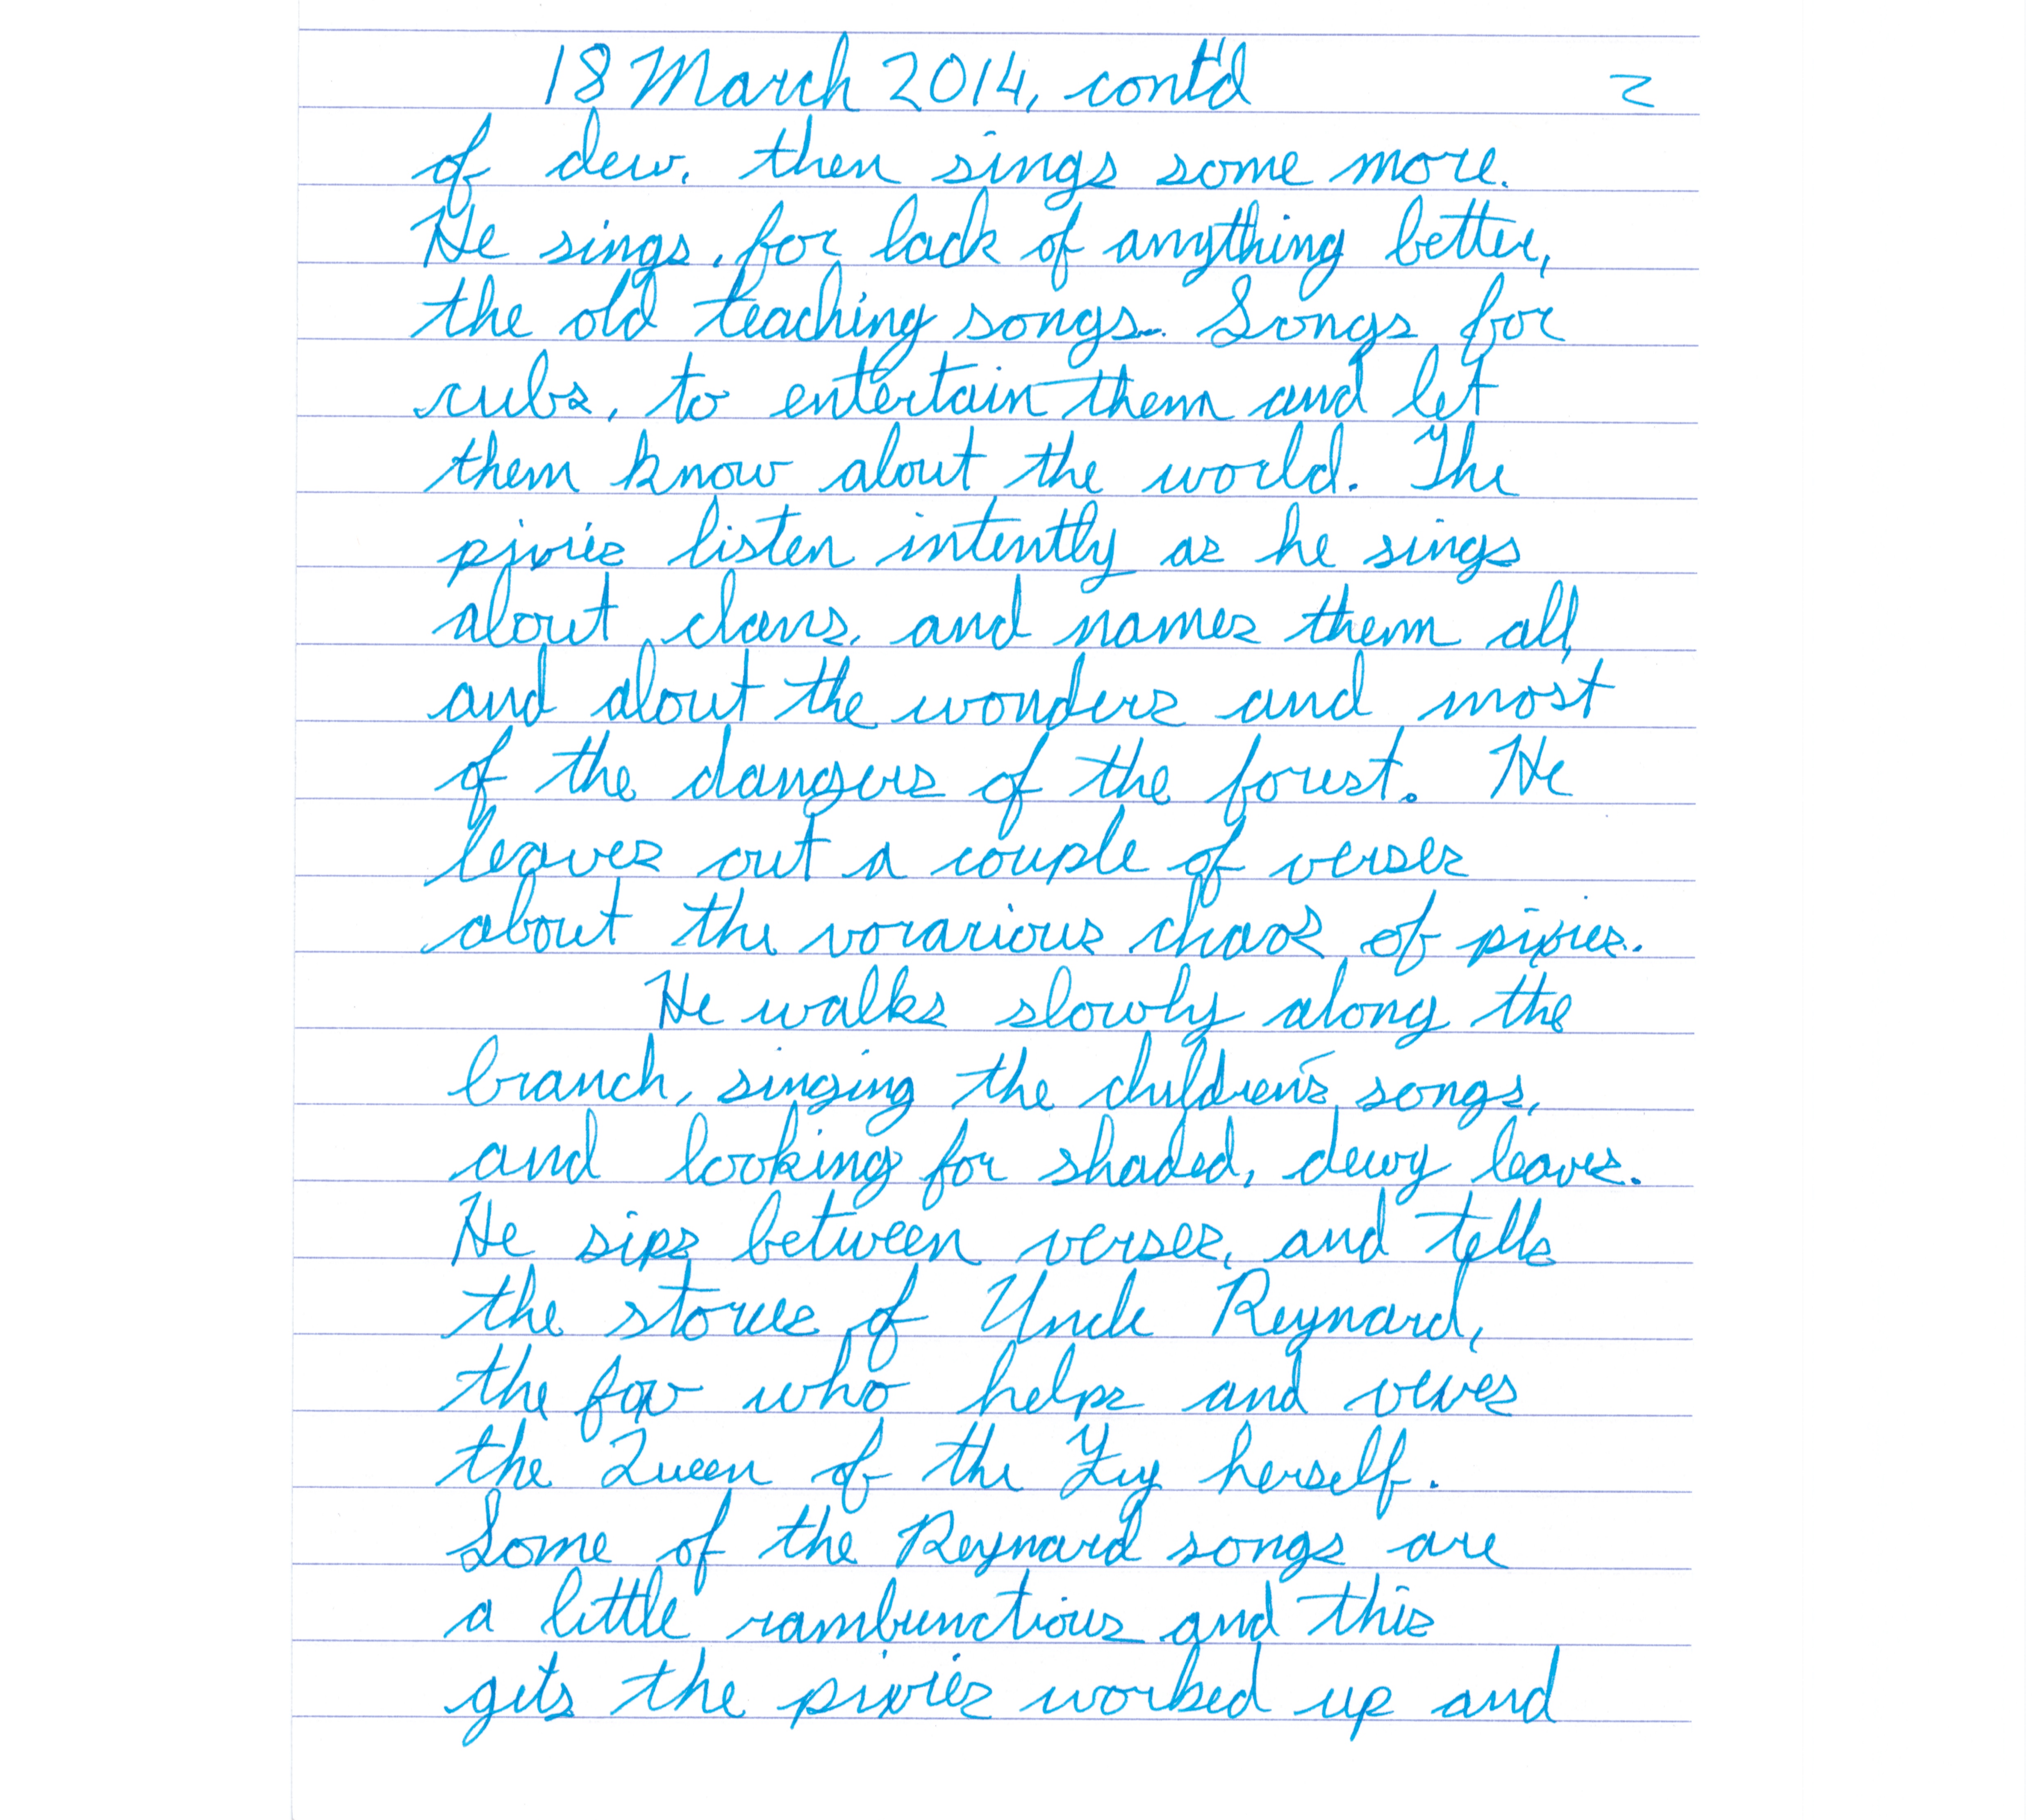 18 March 2014, cont'd 2
of dew, then sings some more.
He sings, for lack of anything better,
the old teaching songs. Songs for
cubs, to entertain them and let
them know about the world. The
pixies listen intently as he sings
about clans, and names them all,
and about the wonders and most
of the dangers of the forest. He
leaves out a couple of verses
about the voracious chaos of pixies.
He walks slowly along the
branch, singing the children's songs,
and looking for shaded, dewy leaves.
He sips between verses, and tells
the stories of Uncle Reynard,
the fox who helps and vexes
the Queen of the Fey herself.
Some of the Reynard songs are
a little rambunctious and this
gets the pixies worked up and